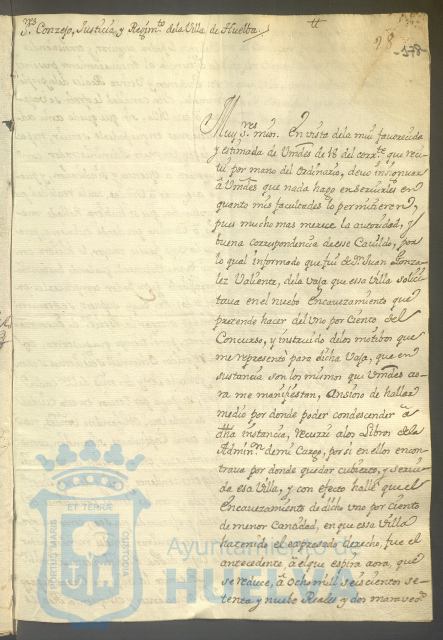 Sres. Conzejo, Justicia, y Regimto. de la Villa de Huelba.
tt
98
178
Muy Sres. mios. En vista dela mui fauorecida
y estimada de Vmdes de 18 del corrte. que reci
tui por mano del Ordinario, deuo insignuar
â Vmdes que nada hago en seruirles en
quanto mis facultades lo permitieren,
pues mucho mas merece la autoridad, y
buena correspondencia de ese Cauildo, por
lo qual informado que fui de Dn. Juan Gonza-
lez Valiente, dela vaja que essa Villa solici
taua en el nuebo Encauezamiento que
pretende hacer del Vno por ciento del
Concurso, y instruido delos motibos que
me representó para dicha Vaja, que en
sustancia son los mismos que Vmdes ao-
ra me manifiestan, ansioso de hallar
medio por donde poder condescender â
dha instancia, recurrí alos Libros dela
Admiron. de mi Cargo, por si en ellos encon-
traua por donde quedar cubierto, y seruir
de esa Villa, y con efecto hallé que el
Encauezamiento de dicho Vno por ciento
de menor Canttdad, en que essa Villa
ha tenido el expresado derecho, fue el
antecedente â el que espira aora, que
se reduce, â Ocho mill seiscientos se-
tenta y nuebe Reales y dos marauedes.
ET TERRAE
PORTUS MARIS
CUSTODIA
Ayuntamiento de
HUELVA